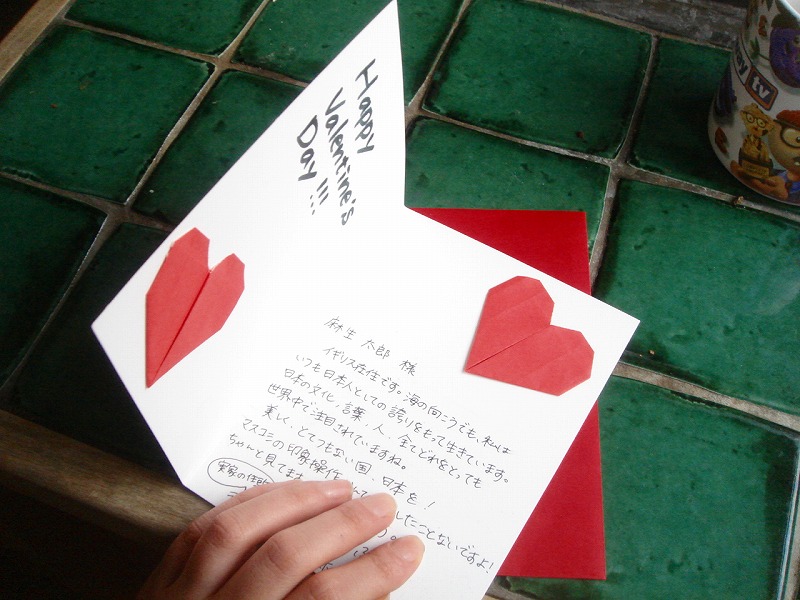 Happy
Valentine's
Day!!!
麻生 太郎 様
イギリス在住です。海の向こうでも、私は
いつも日本人としての誇りをもって生きています。
日本の文化、言葉、人、全てどれをとっても
世界中で注目されていますね。
美しく、とてつもない国、日本を!
マスコミの印象操作 したことないですよ!
ちゃんと見てます 。
実家の住所
tv